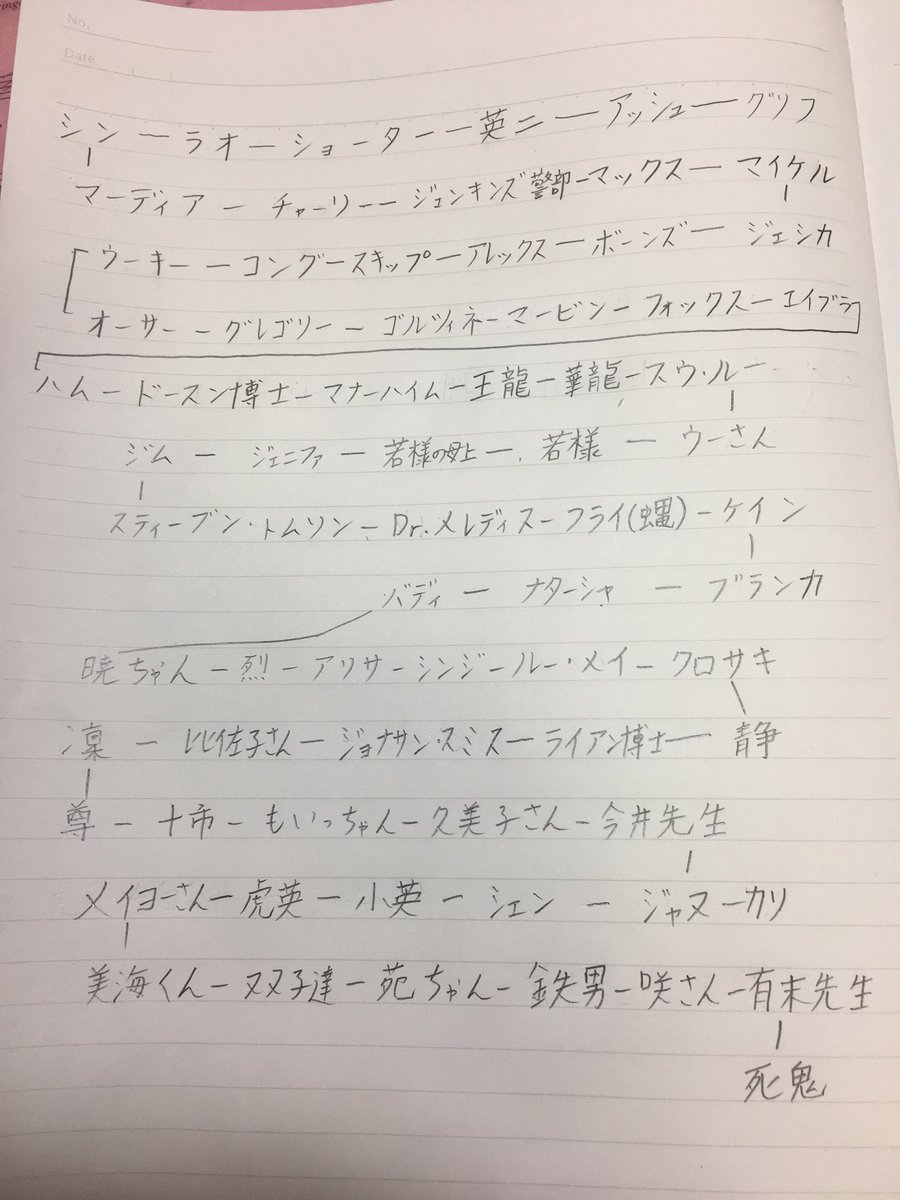 No.
Date
シン ー ラオ ー ショーター ー 英二 ー アッシュ ー グリフ
マーディア ー チャーリー ー ジェンキンズ警部 ー マックス ー マイケル
ウーキー ー コング ー スキップ ー アレックス ー ボーンズ ー ジェシカ
オーサー ー グレゴリー ー ゴルツィネ ー マービン ー フォックス ー エイブラ
ハム ー ドースン博士 ー マナーハイム ー 王龍 ー 華龍 ー スウ・ルー ー
ジム ー ジェニファ ー 若様の母上 ー 若様 ー ウーさん
スティーブン・トムソン ー Dr.メレディス ー フライ(蠅) ー ケイン
バディ ー ナターシャ ー ブランカ
暁ちゃん ー 烈 ー アリサ ー シンジ ー ルー・メイ ー クロサキ
凛 ー 比佐子さん ー ジョナサン・スミス ー ライアン博士 ー 静
尊 ー 十市 ー もいっちゃん ー 久美子さん ー 今井先生
メイヨーさん ー 虎英 ー 小英 ー シェン ー ジャヌーカリ
美海くん ー 双子達 ー 苑ちゃん ー 鉄男 ー 咲さん ー 有末先生
死鬼